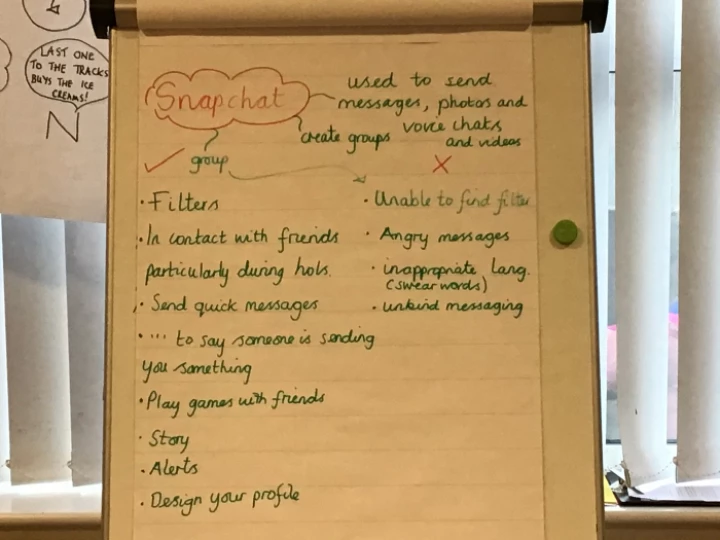 LAST ONE
TO THE TRACKS
BUYS THE ICE
CREAMS!
N
Snapchat
used to send
messages, photos and
voice chats
and videos
create groups
✓ group
✗
· Filters
· In contact with friends
particularly during hols.
· Send quick messages
· ... to say someone is sending
you something
· Play games with friends
· Story
· Alerts
· Design your profile
· Unable to find filter
· Angry messages
· inappropriate lang.
(swear words)
· unkind messaging